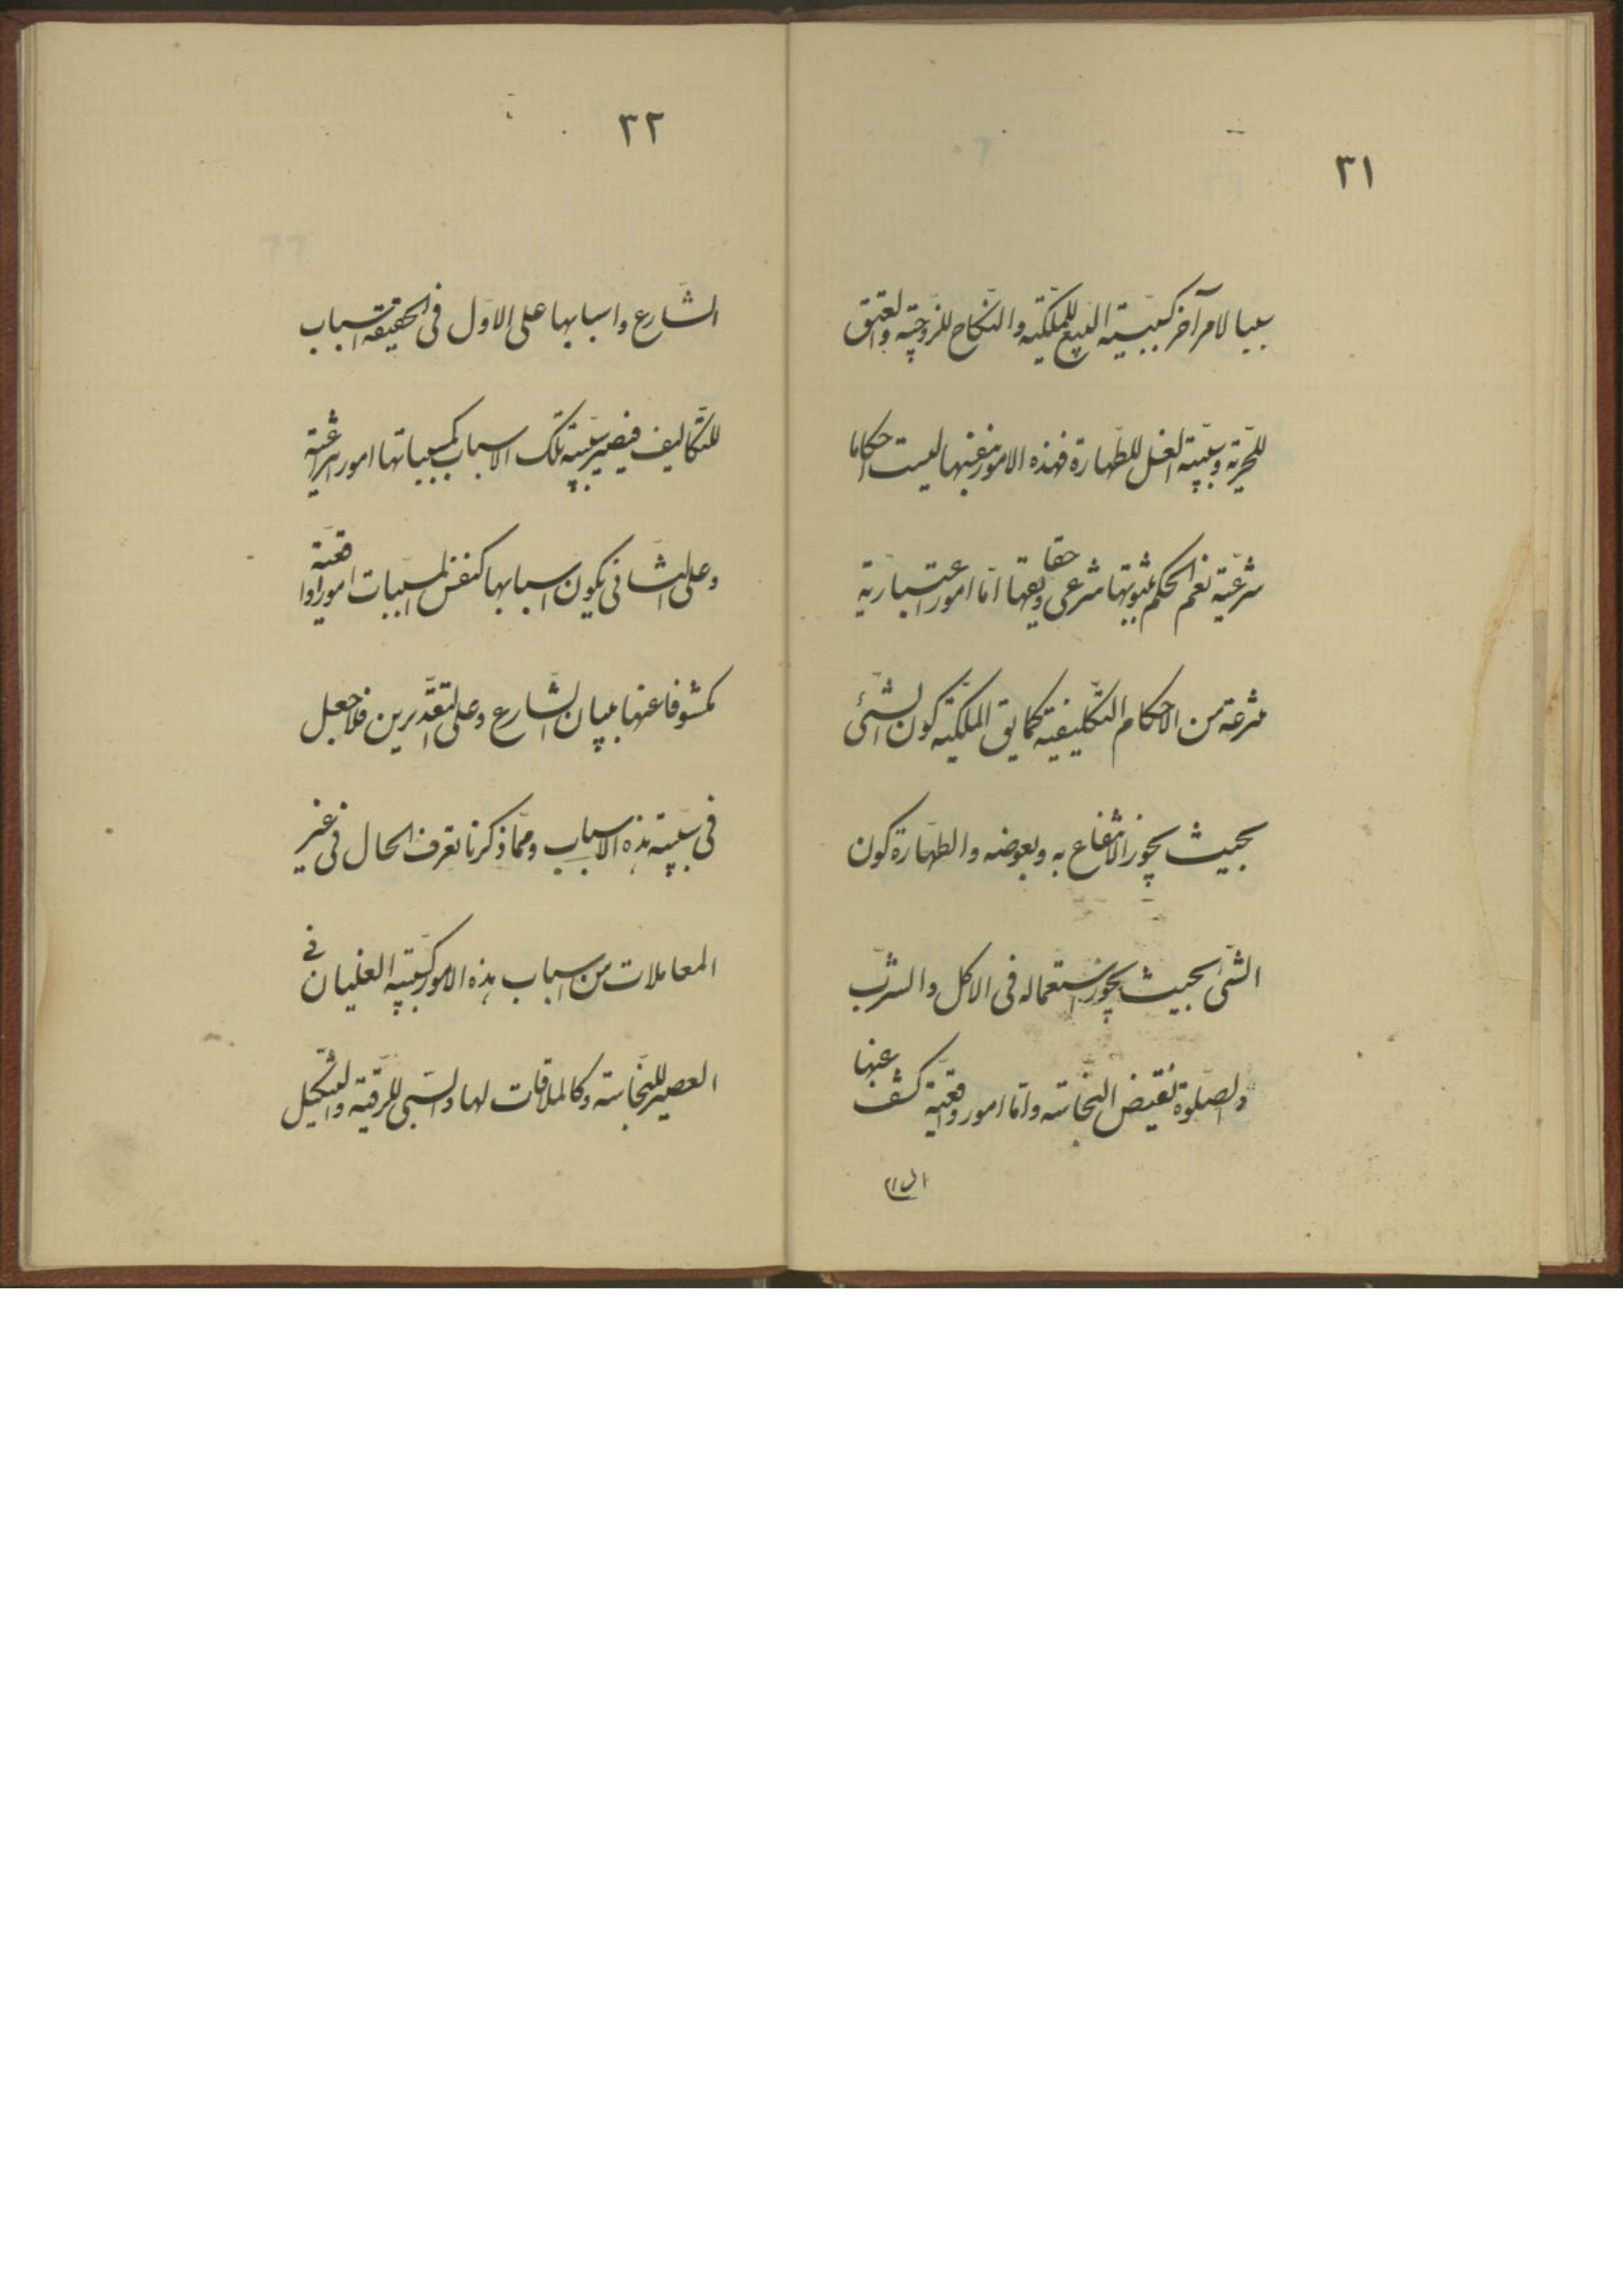 ٣١
سببا لامر آخر كسببيّة البيع للملكيّة والنّكاح للزّوجيّة والعتق
للحريّة وسببيّة الغسل للطّهارة فهذه الامور بنفسها ليست احكاما
شرعيّة نعم الحكم بثبوتها شرعى وحقايقها امّا امور اعتباريّة
منتزعة من الاحكام التّكليفيّة كما يق الملكيّة كون الشّئ
بحيث يجوز الانتفاع به وبعوضه والطّهارة كون
الشّئ بحيث يجوز استعماله فى الاكل والشّرب
والصّلوة نقيض النّجاسة وامّا امور واقعيّة كشف عنها
٣٢
الشّارع واسبابها على الاوّل فى الحقيقة اسباب
للتّكاليف فيصير سببيّة تلك الاسباب كمسبباتها امورا شرعيّة
وعلى الثّانى يكون اسبابها كنفس المسبّبات امورا واقعيّة
مكشوفا عنها ببيان الشّارع وعلى التّقديرين فلا جعل
فى سببيّة هذه الاسباب وممّا ذكرنا تعرف الحال فى غير
المعاملات من اسباب هذه الامور كسببيّة الغليان فى
العصير للنّجاسة وكالملاقات لها والسّبى للرّقيّة والتّنكيل